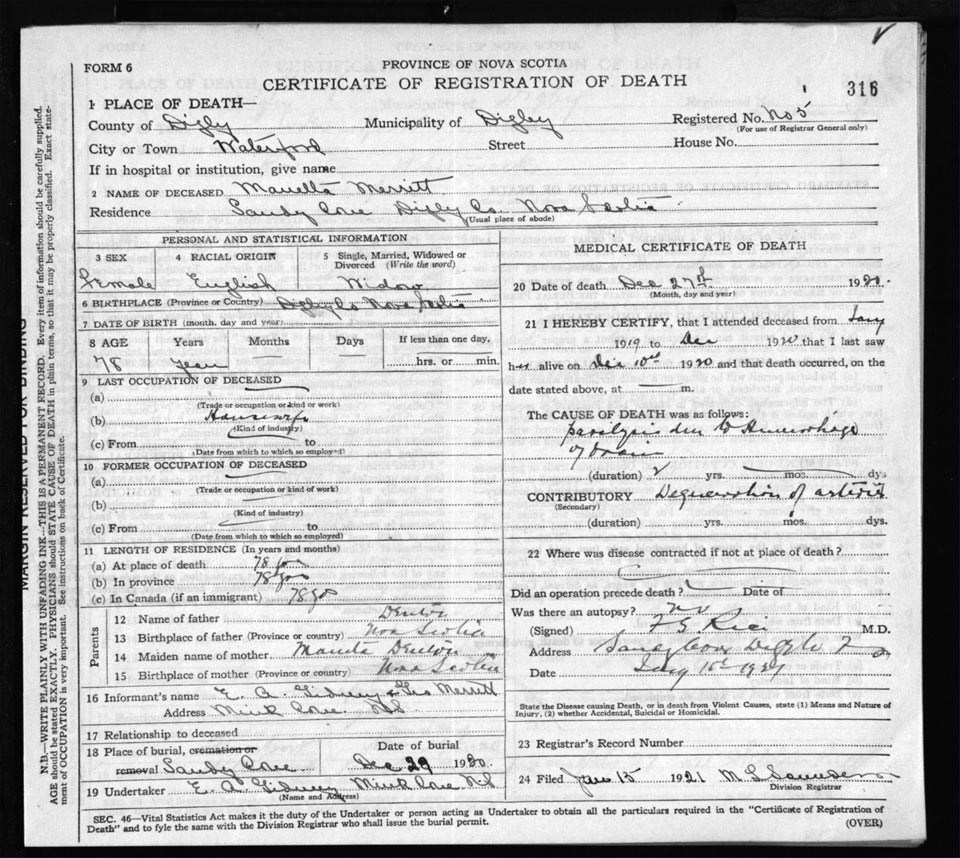 FORM 6
PROVINCE OF NOVA SCOTIA
CERTIFICATE OF REGISTRATION OF DEATH
316
1 PLACE OF DEATH—
County of Digby Municipality of Digby Registered No. No 5
(For use of Registrar General only)
City or Town Waterford Street House No.
If in hospital or institution, give name
2 NAME OF DECEASED Manella Merritt
Residence Sandy Cove Digby Co. Nova Scotia
(Usual place of abode)
PERSONAL AND STATISTICAL INFORMATION
3 SEX 4 RACIAL ORIGIN 5 Single, Married, Widowed or Divorced (Write the word)
Female English Widow
6 BIRTHPLACE (Province or Country) Digby Co Nova Scotia
7 DATE OF BIRTH (month, day and year)
8 AGE Years Months Days If less than one day,
78 years hrs. or min.
9 LAST OCCUPATION OF DECEASED
(a)
(Trade or occupation or kind or work)
(b) Housewife
(Kind of industry)
(c) From to
(Date from which to which so employed)
10 FORMER OCCUPATION OF DECEASED
(a)
(Trade or occupation or kind of work)
(b)
(Kind of industry)
(c) From to
(Date from which to which so employed)
11 LENGTH OF RESIDENCE (In years and months)
(a) At place of death 78 yrs
(b) In province 78 yrs
(c) In Canada (if an immigrant) 78 yrs
Parents
12 Name of father Denton
13 Birthplace of father (Province or country) Nova Scotia
14 Maiden name of mother Denton
15 Birthplace of mother (Province or country) Nova Scotia
16 Informant's name E. A. Gidney & Geo Merritt
Address Mink Cove N.S.
17 Relationship to deceased
18 Place of burial, cremation or Date of burial
removal Sandy Cove Dec 29 1920.
19 Undertaker E. A. Gidney Mink Cove N.S.
(Name and Address)
MEDICAL CERTIFICATE OF DEATH
20 Date of death Dec 27th 1920.
(Month, day and year)
21 I HEREBY CERTIFY, that I attended deceased from Jany
1919 to Dec 1920 that I last saw
her alive on Dec 10th 1920 and that death occurred, on the
date stated above, at m.
The CAUSE OF DEATH was as follows:
paralysis due to Hemorrhage
of brain
(duration) 2 yrs. mos. dys
CONTRIBUTORY Degeneration of arteries
(Secondary)
(duration) yrs. mos. dys.
22 Where was disease contracted if not at place of death?
Did an operation precede death? Date of
Was there an autopsy? no
(Signed) F E Rice M.D.
Address Sandy Cove Digby
Date Jany 1921
State the Disease causing Death, or in death from Violent Causes, state (1) Means and Nature of
Injury, (2) whether Accidental, Suicidal or Homicidal.
23 Registrar's Record Number
24 Filed Jan 15 1921 M L Saunders
Division Registrar
SEC. 46—Vital Statistics Act makes it the duty of the Undertaker or person acting as Undertaker to obtain all the particulars required in the "Certificate of Registration of
Death" and to fyle the same with the Division Registrar who shall issue the burial permit. (OVER)
MARGIN RESERVED FOR BINDING
N.B.—WRITE PLAINLY WITH UNFADING INK—THIS IS A PERMANENT RECORD. Every item of information should be carefully supplied.
AGE should be stated EXACTLY. PHYSICIANS should STATE CAUSE OF DEATH in plain terms, so that it may be properly classified. Exact state-
ment of OCCUPATION is very important. See instructions on back of Certificate.